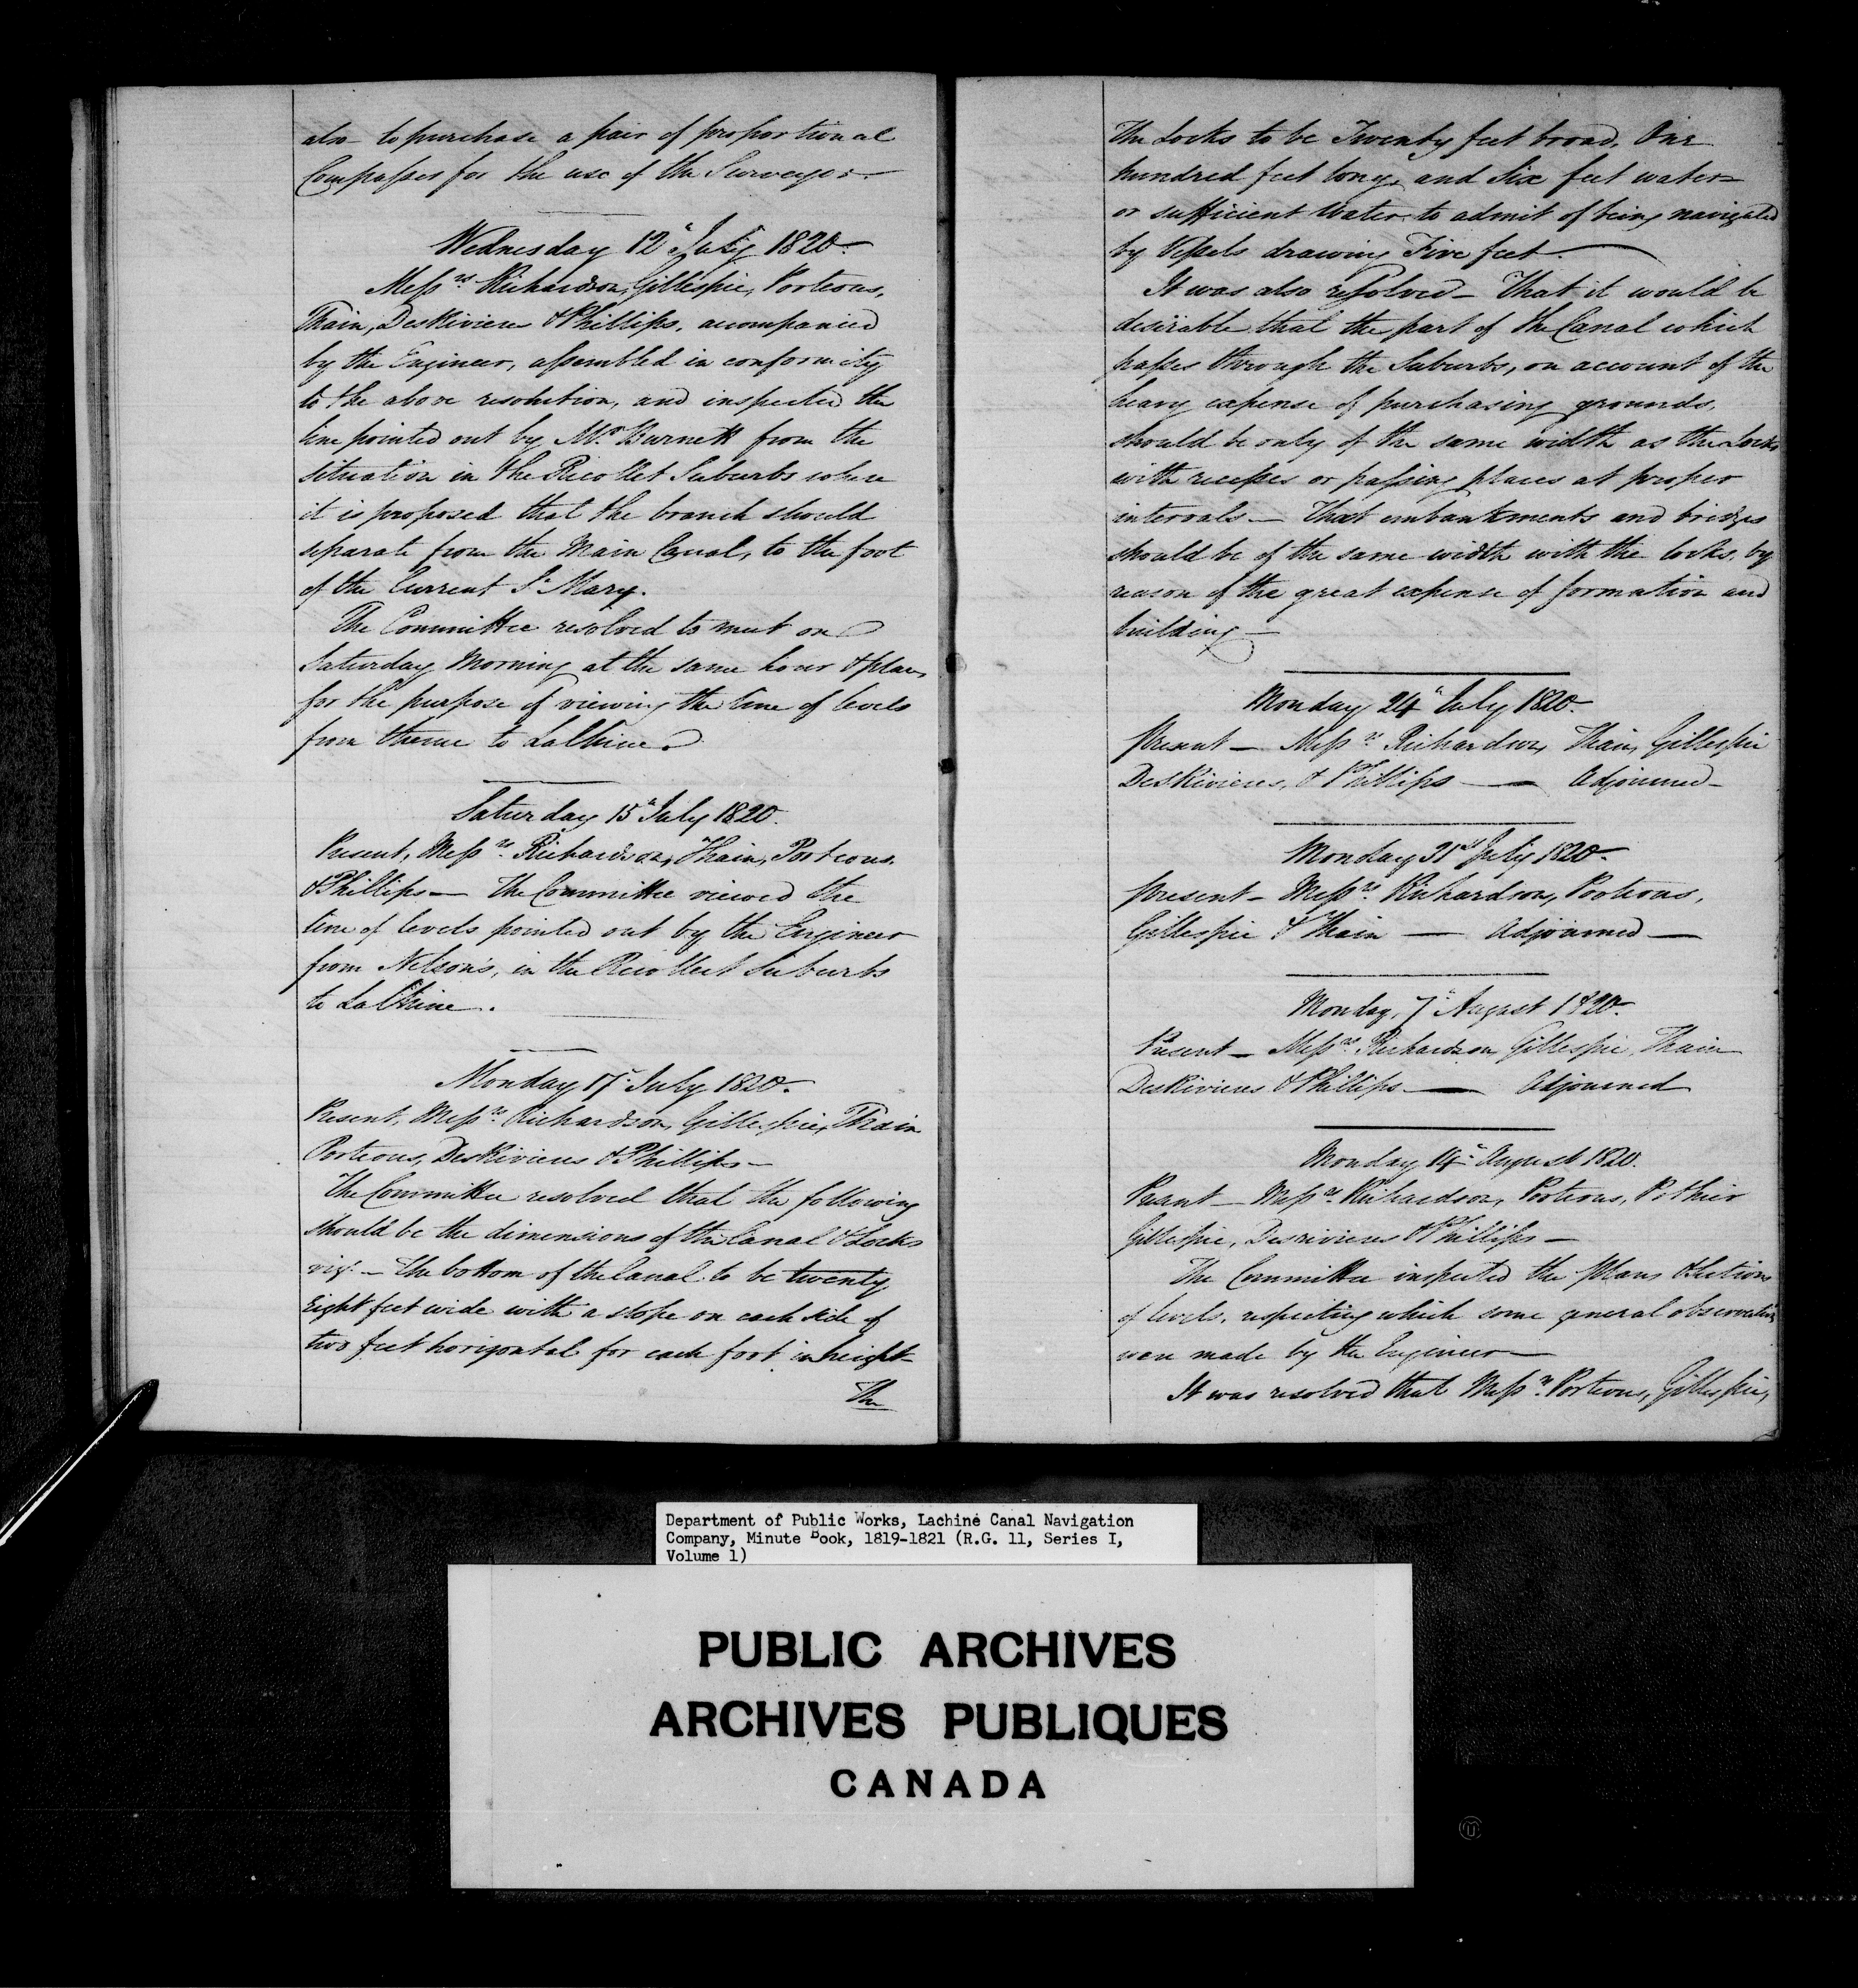 also to purchase a pair of proportional
Compasses for the use of the Surveyor.
Wednesday 12th July 1820.
Messrs Richardson, Gillespie, Porteous,
Thain, DesRivieres & Phillips, accompanied
by the Engineer, assembled in conformity
to the above resolution, and inspected the
line pointed out by Mr Burnett from the
situation in the Ricollet Suburbs where
it is proposed that the branch should
separate from the Main Canal, to the foot
of the Current St Mary.
The Committee resolved to meet on
Saturday Morning at the same hour & place,
for the purpose of viewing the line of levels
from thence to LaChine.
Saturday 15th July 1820.
Present, Messrs Richardson, Thain, Porteous.
& Phillips — The Committee viewed the
line of levels pointed out by the Engineer
from Nelson's, in the Ricollect Suburbs
to LaChine.
Monday 17th July 1820.
Present, Messrs Richardson, Gillespie, Thain
Porteous, DesRivieres & Phillips —
The Committee resolved that the following
should be the dimensions of the Canal & Locks
vizt — The bottom of the Canal to be twenty
Eight feet wide with a slope on each side of
two feet horizontal for each foot in height
The
The Locks to be Twenty feet broad, One
hundred feet long, and Six feet water
or sufficient Water to admit of being navigated
by Vessels drawing Five feet.
It was also resolved — That it would be
desirable that the part of the Canal which
passes through the Suburbs, on account of the
heavy expense of purchasing grounds,
should be only of the same width as the Locks
with recesses or passing places at proper
intervals — That embankments and bridges
should be of the same width with the locks, by
reason of the great expense of formation and
building —
Monday 24th July 1820.
Present — Messrs Richardson, Thain, Gillespie
DesRivieres, & Phillips — Adjourned —
Monday 31st July 1820.
Present — Messrs Richardson, Porteous,
Gillespie & Thain — Adjourned —
Monday, 7th August 1820.
Present — Messrs Richardson, Gillespie, Thain
DesRivieres & Phillips — Adjourned
Monday 14th August 1820.
Present — Messrs Richardson, Porteous, Pothier
Gillespie, Desrivieres & Phillips —
The Committee inspected the plans & Sections
of levels, respecting which some general observations
were made by the Engineer —
It was resolved that Messrs Porteous, Gillespie,
Department of Public Works, Lachine Canal Navigation
Company, Minute Book, 1819-1821 (R.G. 11, Series I,
Volume 1)
PUBLIC ARCHIVES
ARCHIVES PUBLIQUES
CANADA